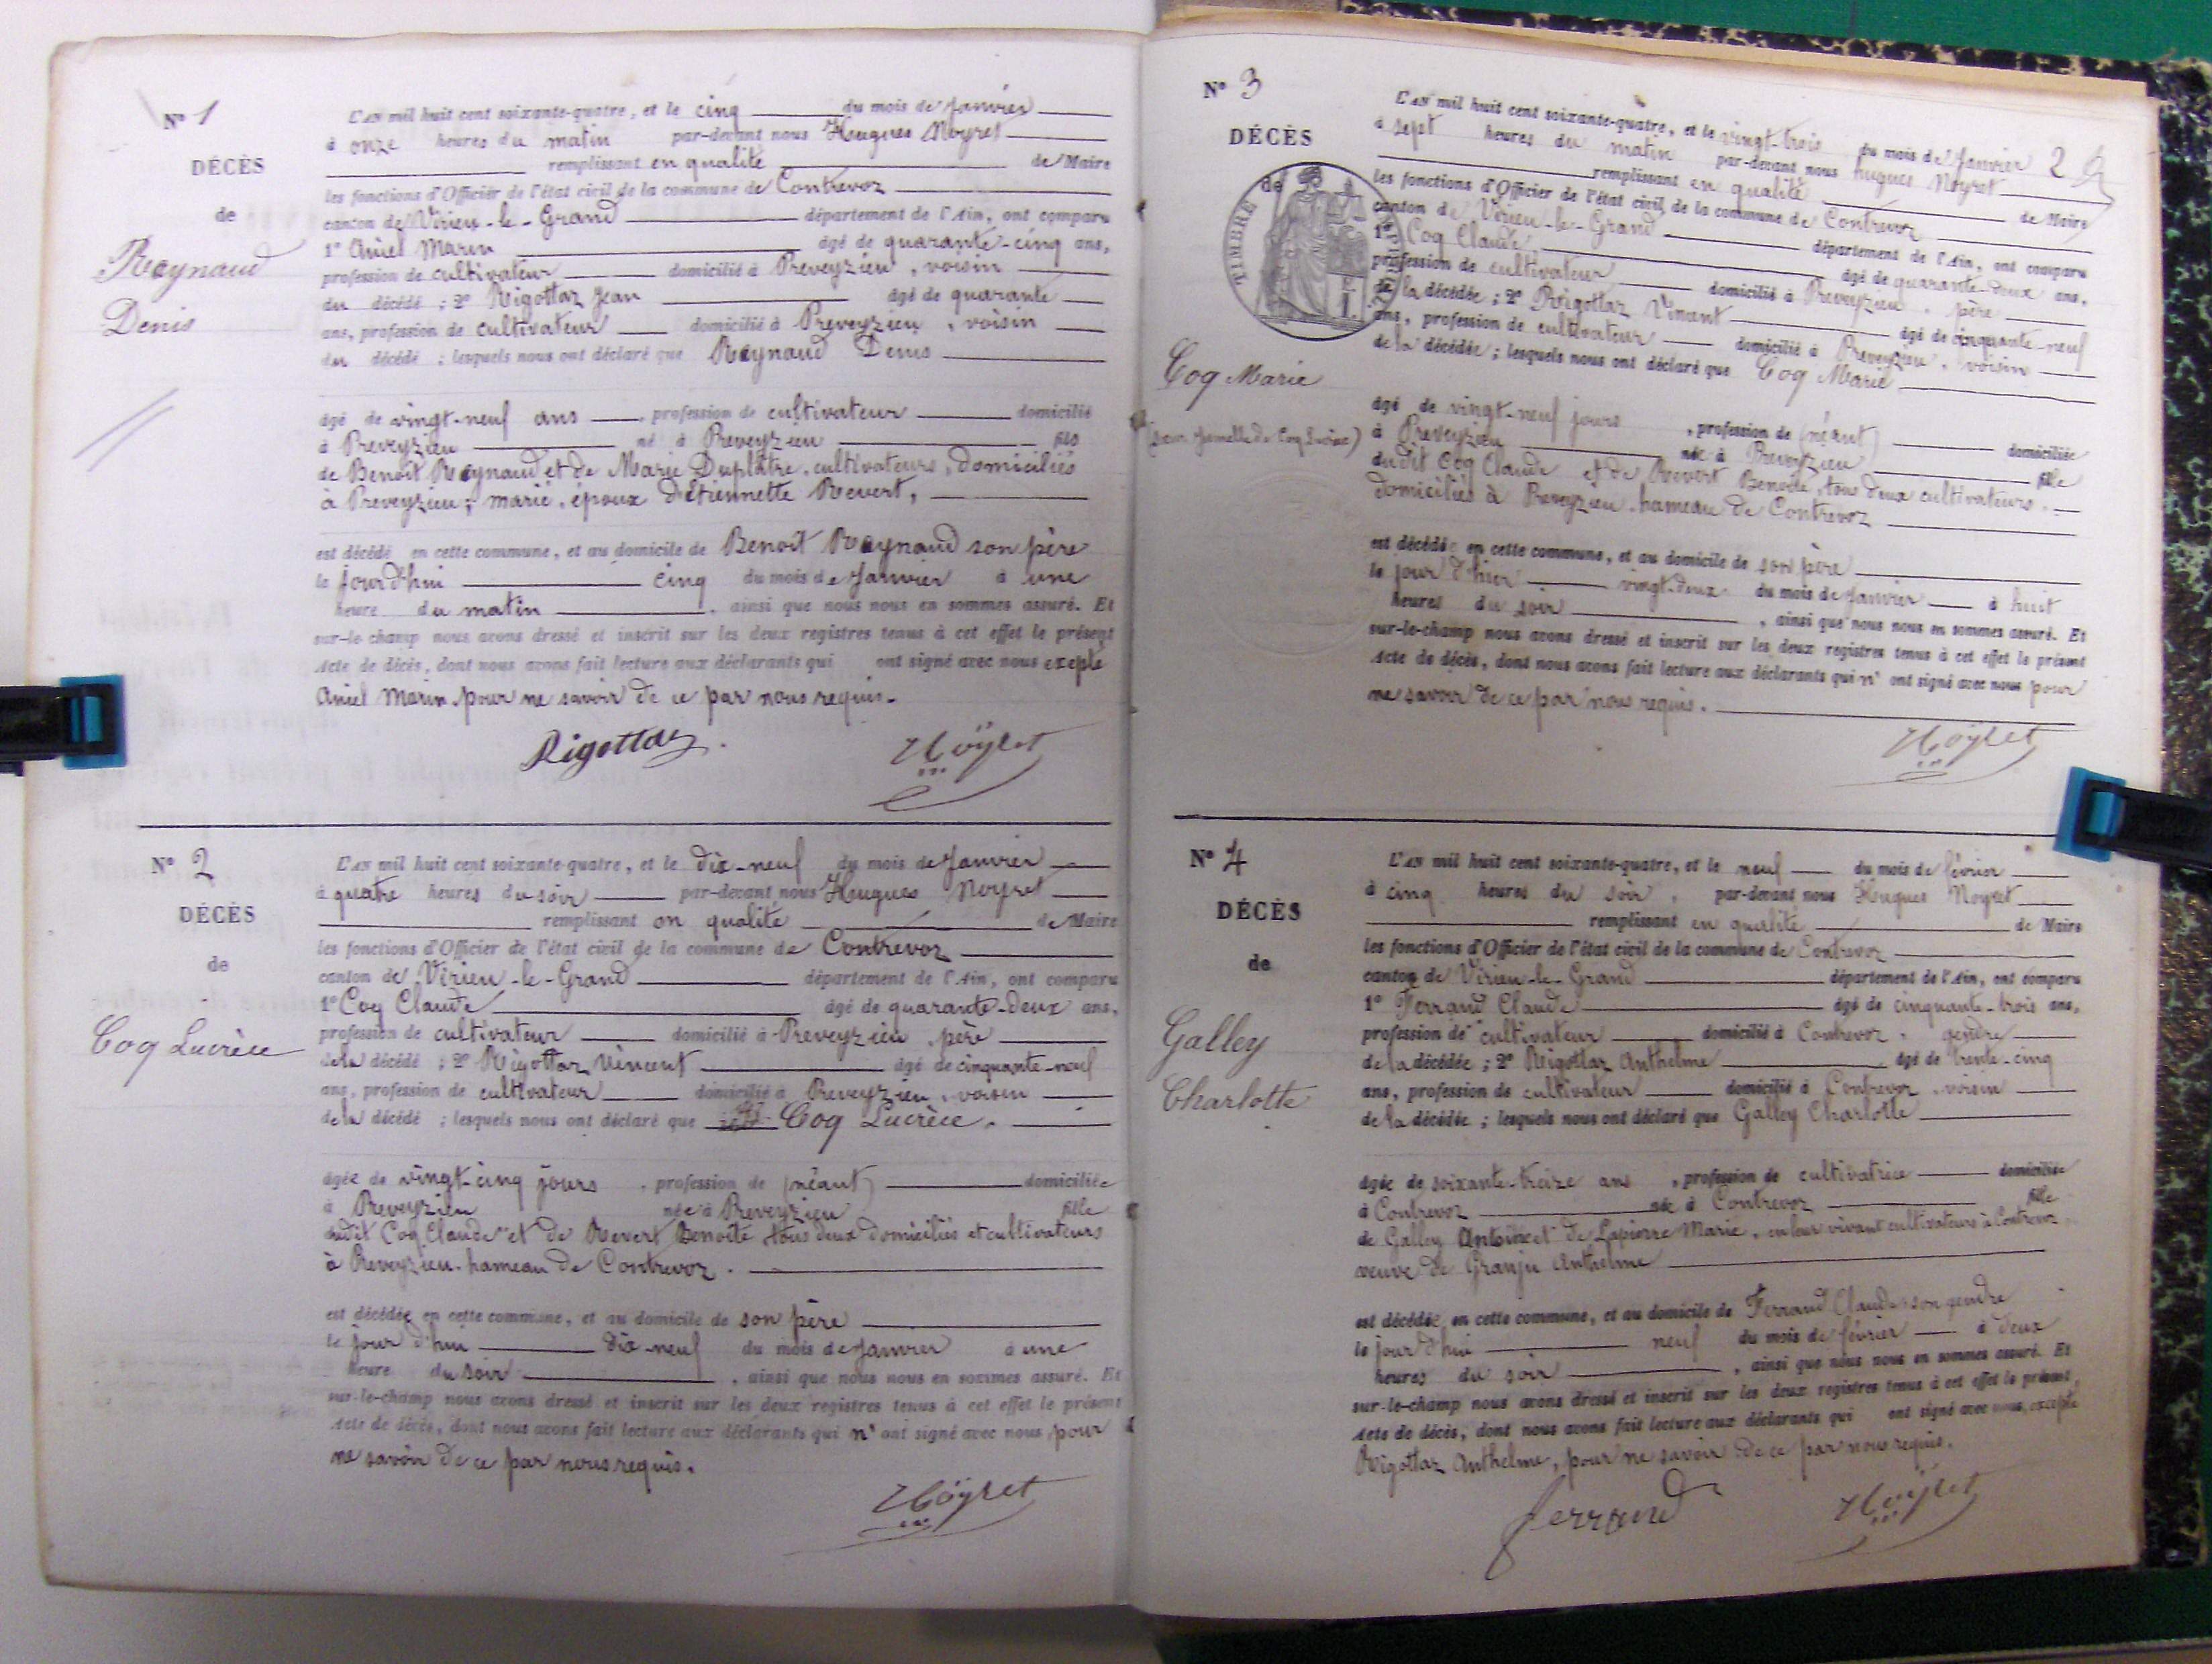 N° 1
DÉCÈS
de
Raynaud
Denis
L'an mil huit cent soixante-quatre, et le cinq du mois de Janvier
à onze heures du matin par-devant nous Hugues Noyret
remplissant en qualité de Maire
les fonctions d'Officier de l'état civil de la commune de Contrevoz
canton de Virieu-le-Grand département de l'Ain, ont comparu
1° Aniel Marin âgé de quarante-cinq ans,
profession de cultivateur domicilié à Preveyzieu, voisin
du décédé ; 2° Rigottaz Jean âgé de quarante
ans, profession de cultivateur domicilié à Preveyzieu, voisin
du décédé ; lesquels nous ont déclaré que Raynaud Denis
âgé de vingt-neuf ans, profession de cultivateur domicilié
à Preveyzieu né à Preveyzieu fils
de Benoît Raynaud et de Marie Duplâtre, cultivateurs, domiciliés
à Preveyzieu ; marié, époux d'Etiennette Revert,
est décédé en cette commune, et au domicile de Benoît Raynaud son père
le jourd'hui cinq du mois de Janvier à une
heure du matin, ainsi que nous nous en sommes assuré. Et
sur-le-champ nous avons dressé et inscrit sur les deux registres tenus à cet effet le présent
Acte de décès, dont nous avons fait lecture aux déclarants qui ont signé avec nous excepté
Aniel Marin pour ne savoir de ce par nous requis.
Rigottaz Noyret
N° 2
DÉCÈS
de
Coq Lucrèce
L'an mil huit cent soixante-quatre, et le dix-neuf du mois de Janvier
à quatre heures du soir par-devant nous Hugues Noyret
remplissant en qualité de Maire
les fonctions d'Officier de l'état civil de la commune de Contrevoz
canton de Virieu-le-Grand département de l'Ain, ont comparu
1° Coq Claude âgé de quarante-deux ans,
profession de cultivateur domicilié à Preveyzieu, père
de la décédé ; 2° Rigottaz Vincent âgé de cinquante-neuf
ans, profession de cultivateur domicilié à Preveyzieu, voisin
de la décédé ; lesquels nous ont déclaré que Coq Lucrèce.
âgée de vingt-cinq jours, profession de (néant) domiciliée
à Preveyzieu née à Preveyzieu fille
dudit Coq Claude et de Revert Benoîte tous deux domiciliés et cultivateurs
à Preveyzieu, hameau de Contrevoz.
est décédée en cette commune, et au domicile de son père
le jour d'hui dix-neuf du mois de Janvier à une
heure du soir, ainsi que nous nous en sommes assuré. Et
sur-le-champ nous avons dressé et inscrit sur les deux registres tenus à cet effet le présent
Acte de décès, dont nous avons fait lecture aux déclarants qui n' ont signé avec nous pour
ne savoir de ce par nous requis.
Noyret
N° 3
DÉCÈS
de
TIMBRE
Coq Marie
(sœur jumelle de Coq Lucrèce)
L'an mil huit cent soixante-quatre, et le vingt-trois du mois de Janvier 2
à sept heures du matin par-devant nous hugues Noyret
remplissant en qualité de Maire
les fonctions d'Officier de l'état civil de la commune de Contrevoz
canton de Virieu-le-Grand département de l'Ain, ont comparu
1° Coq Claude âgé de quarante-deux ans,
profession de cultivateur domicilié à Preveyzieu, père
de la décédée ; 2° Rigottaz Vincent âgé de cinquante-neuf
ans, profession de cultivateur domicilié à Preveyzieu, voisin
de la décédée ; lesquels nous ont déclaré que Coq Marie
âgé de vingt-neuf jours, profession de (néant) domiciliée
à Preveyzieu née à Preveyzieu fille
dudit Coq Claude et de Revert Benoîte, tous deux cultivateurs,
domiciliés à Preveyzieu, hameau de Contrevoz
est décédée en cette commune, et au domicile de son père
le jour d'hier vingt-deux du mois de Janvier à huit
heures du soir, ainsi que nous nous en sommes assuré. Et
sur-le-champ nous avons dressé et inscrit sur les deux registres tenus à cet effet le présent
Acte de décès, dont nous avons fait lecture aux déclarants qui n' ont signé avec nous pour
ne savoir de ce par nous requis.
Noyret
N° 4
DÉCÈS
de
Galley
Charlotte
L'an mil huit cent soixante-quatre, et le neuf du mois de février
à cinq heures du soir, par-devant nous Hugues Noyret
remplissant en qualité de Maire
les fonctions d'Officier de l'état civil de la commune de Contrevoz
canton de Virieu-le-Grand département de l'Ain, ont comparu
1° Ferrand Claude âgé de cinquante-trois ans,
profession de cultivateur domicilié à Contrevoz, gendre
de la décédée ; 2° Rigottaz Anthelme âgé de trente-cinq
ans, profession de cultivateur domicilié à Contrevoz, voisin
de la décédée ; lesquels nous ont déclaré que Galley Charlotte
âgée de soixante-treize ans, profession de cultivatrice domiciliée
à Contrevoz née à Contrevoz fille
de Galley Antoine et de Lapierre Marie, en leur vivant cultivateurs à Contrevoz
veuve de Granju Anthelme
est décédée en cette commune, et au domicile de Ferrand Claude son gendre
le jour d'hui neuf du mois de février à deux
heures du soir, ainsi que nous nous en sommes assuré. Et
sur-le-champ nous avons dressé et inscrit sur les deux registres tenus à cet effet le présent,
Acte de décès, dont nous avons fait lecture aux déclarants qui ont signé avec nous, excepté
Rigottaz Anthelme, pour ne savoir de ce par nous requis.
ferrand Noyret